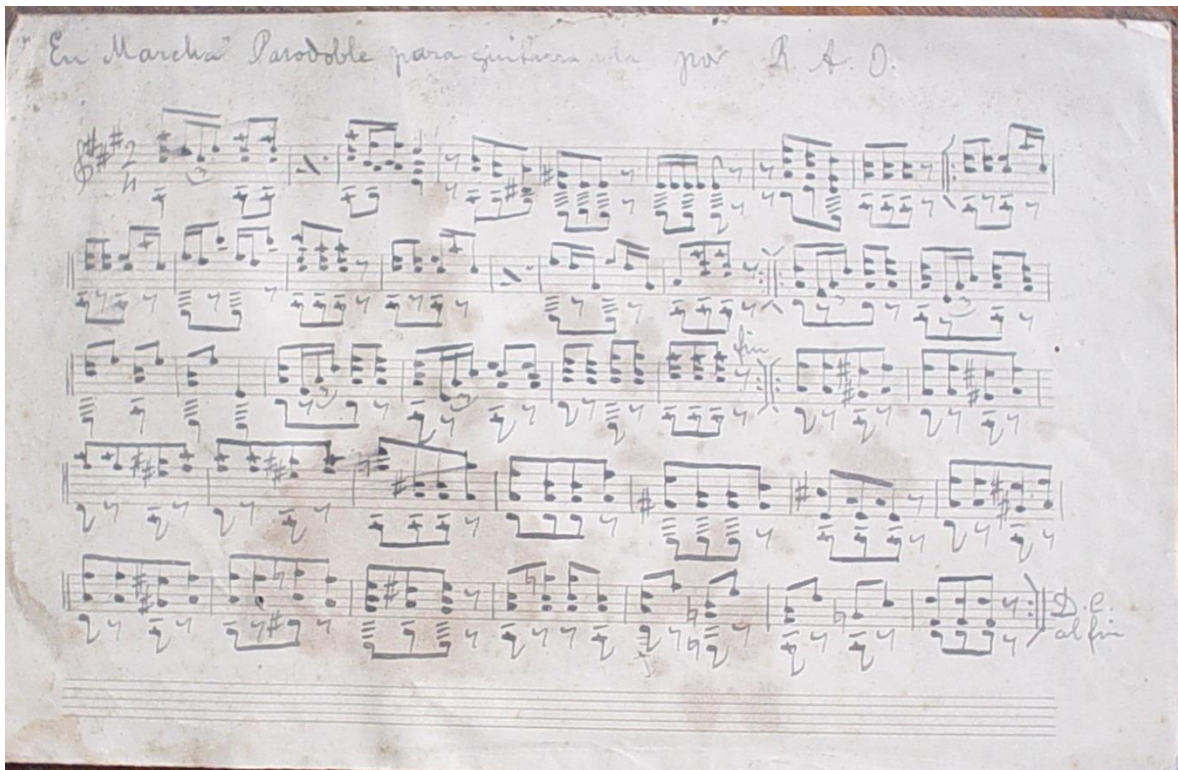 "En Marcha" Pasodoble para guitarra sola por R. A. O.
fin
D.C.
al fin